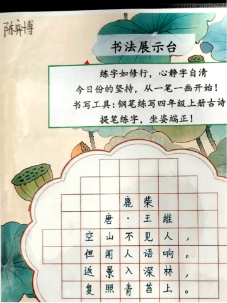 陈弈博
书法展示台
练字如修行，心静字自清
今日份的坚持，从一笔一画开始！
书写工具：钢笔练写四年级上册古诗
提笔练字，坐姿端正！
鹿柴
唐·王维
空山不见人，
但闻人语响。
返景入深林，
复照青苔上。